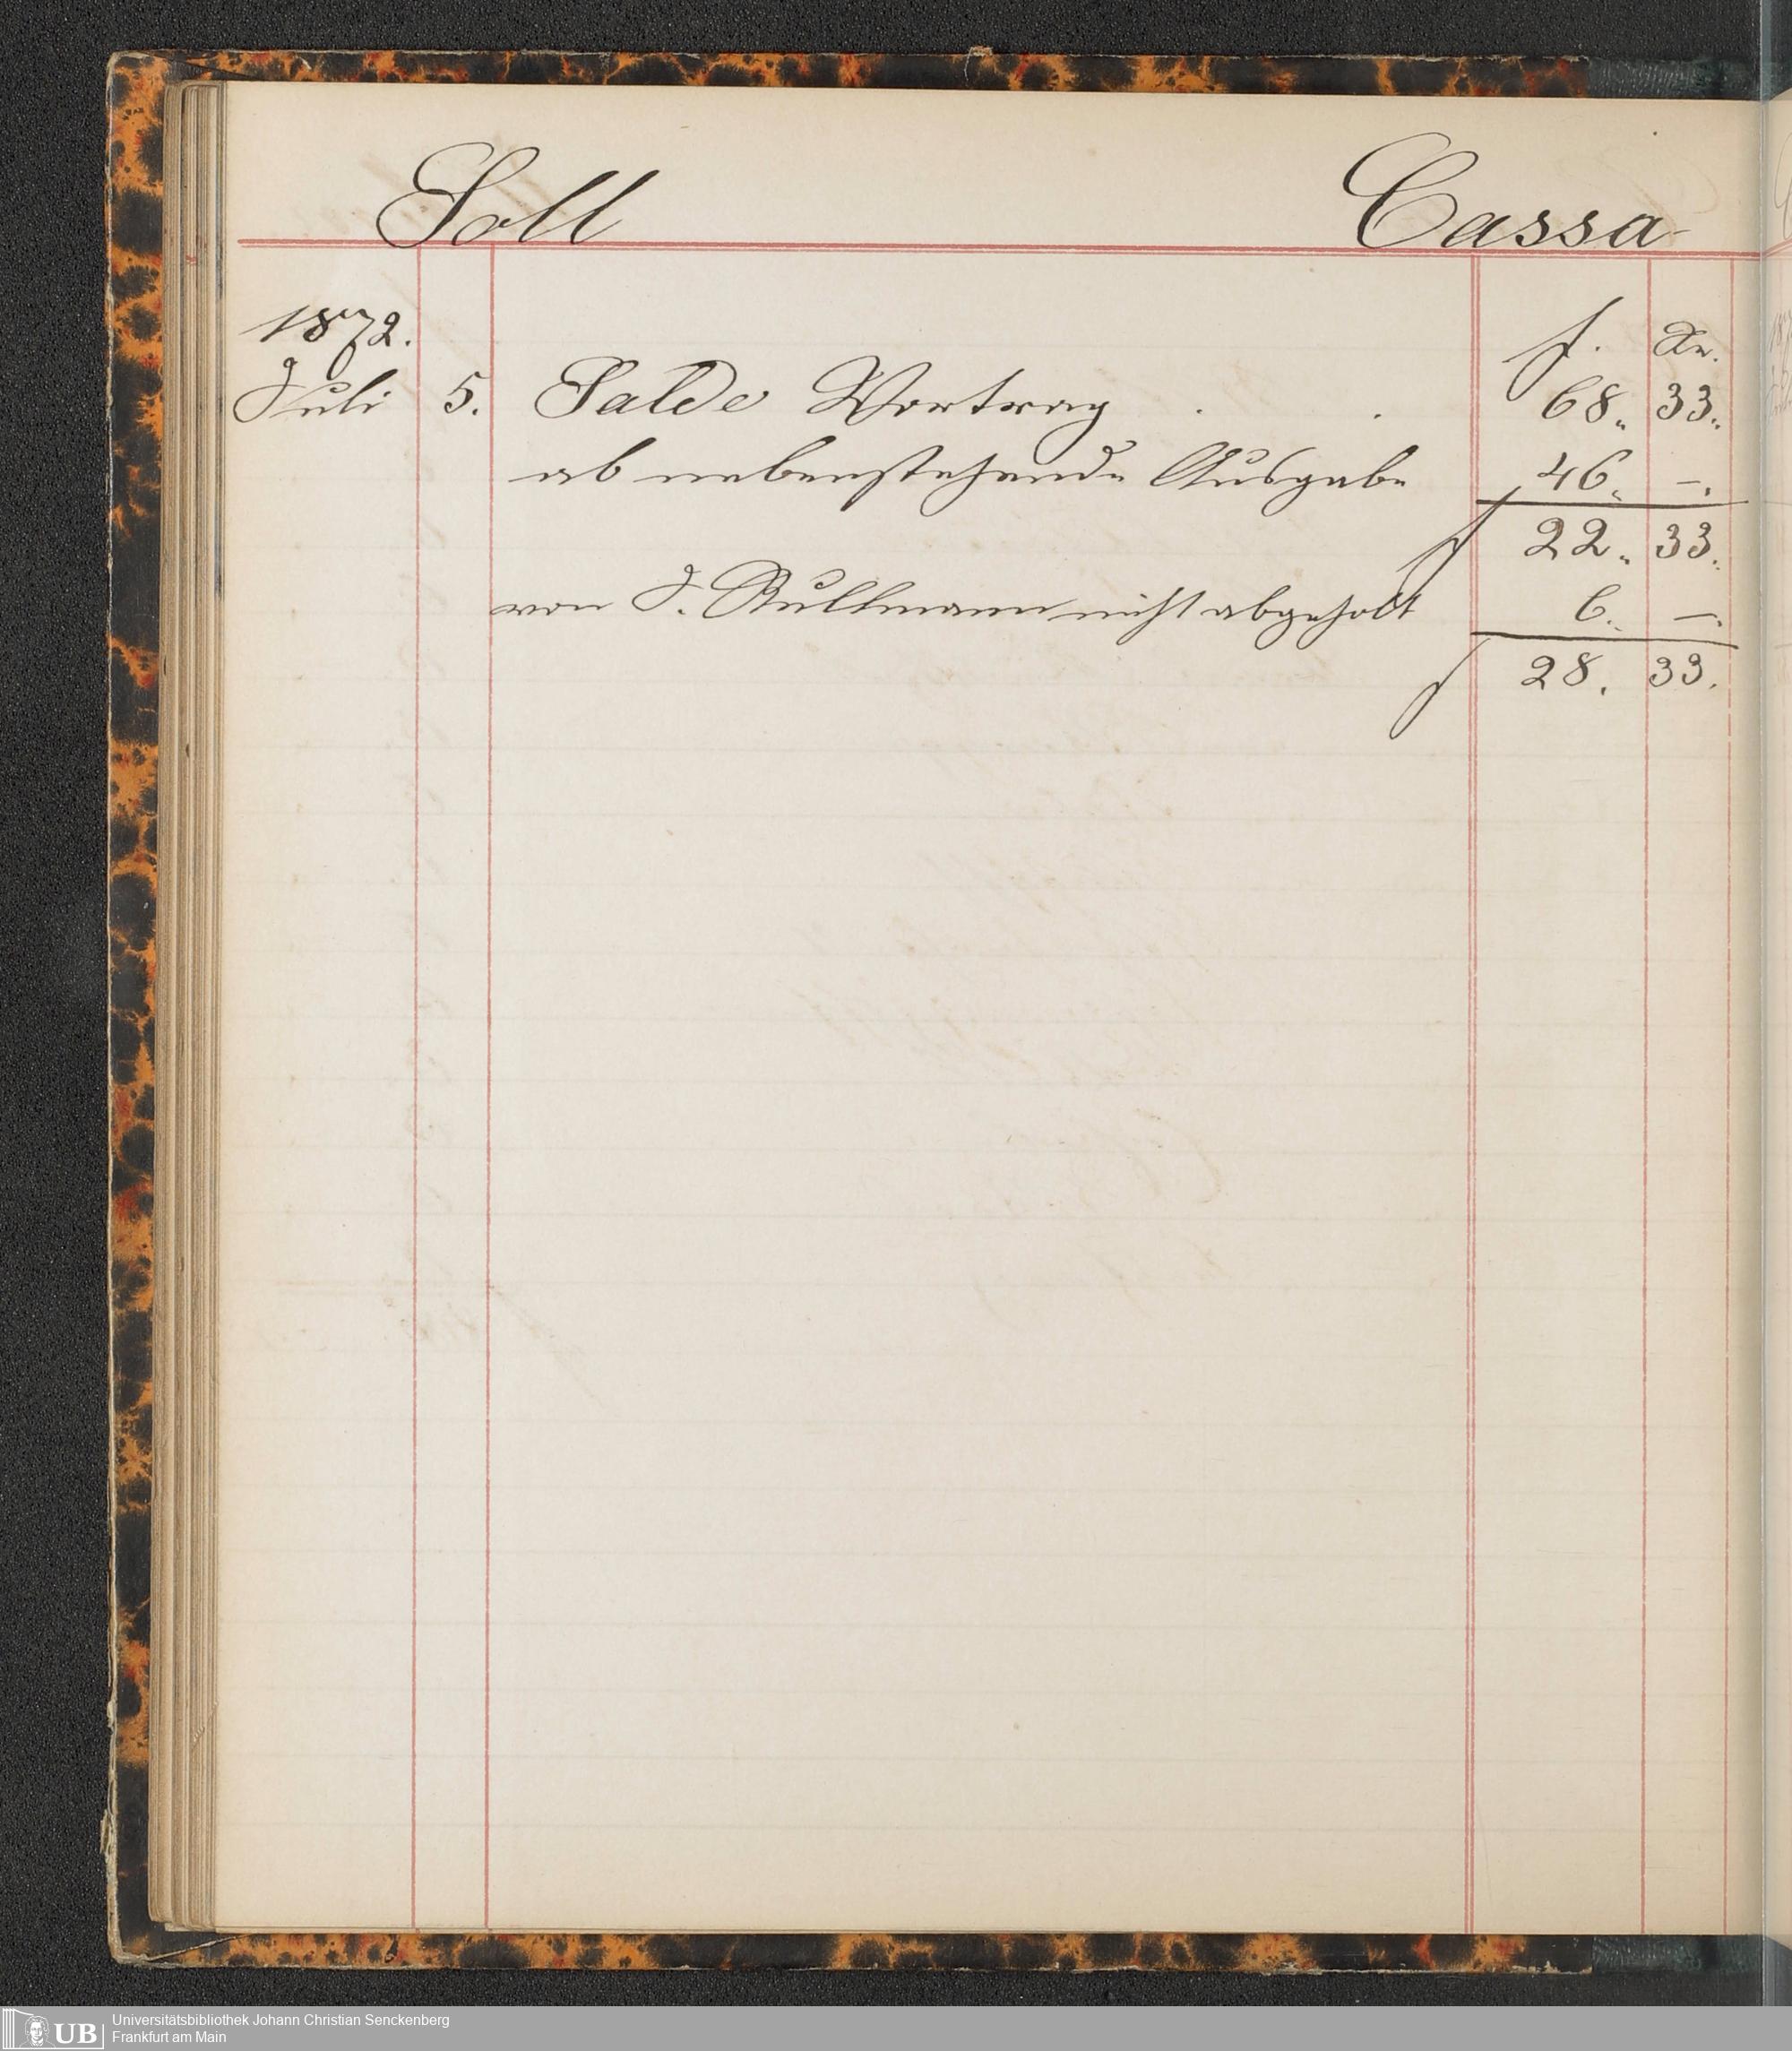 Soll Cassa
1872. f. Kr.
Juli 5. Saldo Vortrag . . 68. 33.
ab nebenstehende Ausgabe 46. –.
f 22. 33.
von J. Kullmann nicht abgeholt 6. –.
f 28. 33.
UB Universitätsbibliothek Johann Christian Senckenberg
Frankfurt am Main